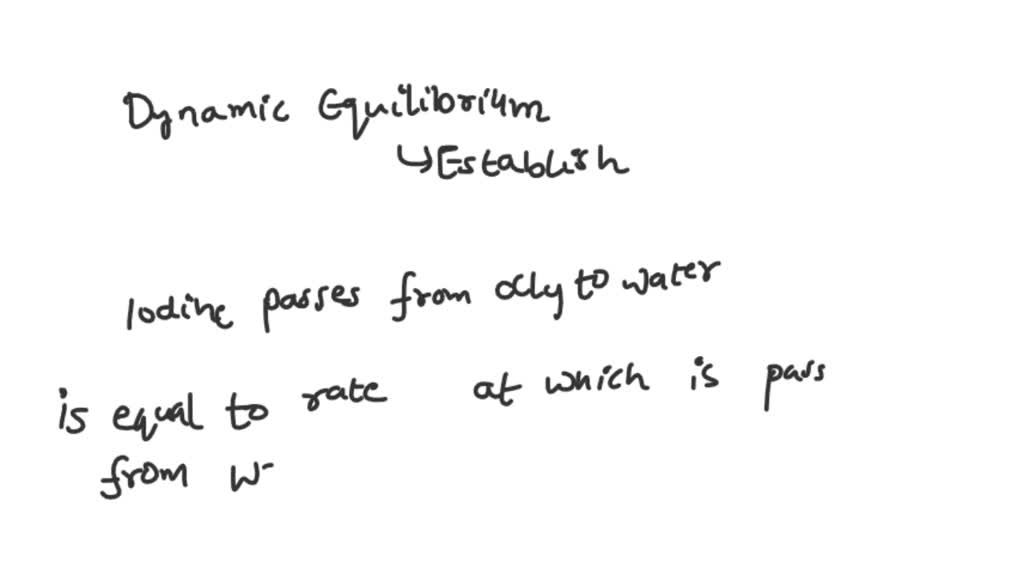 Dynamic Equilibrium
↳Establish
Iodine passes from ccly to water
is equal to rate at which is pass
from w